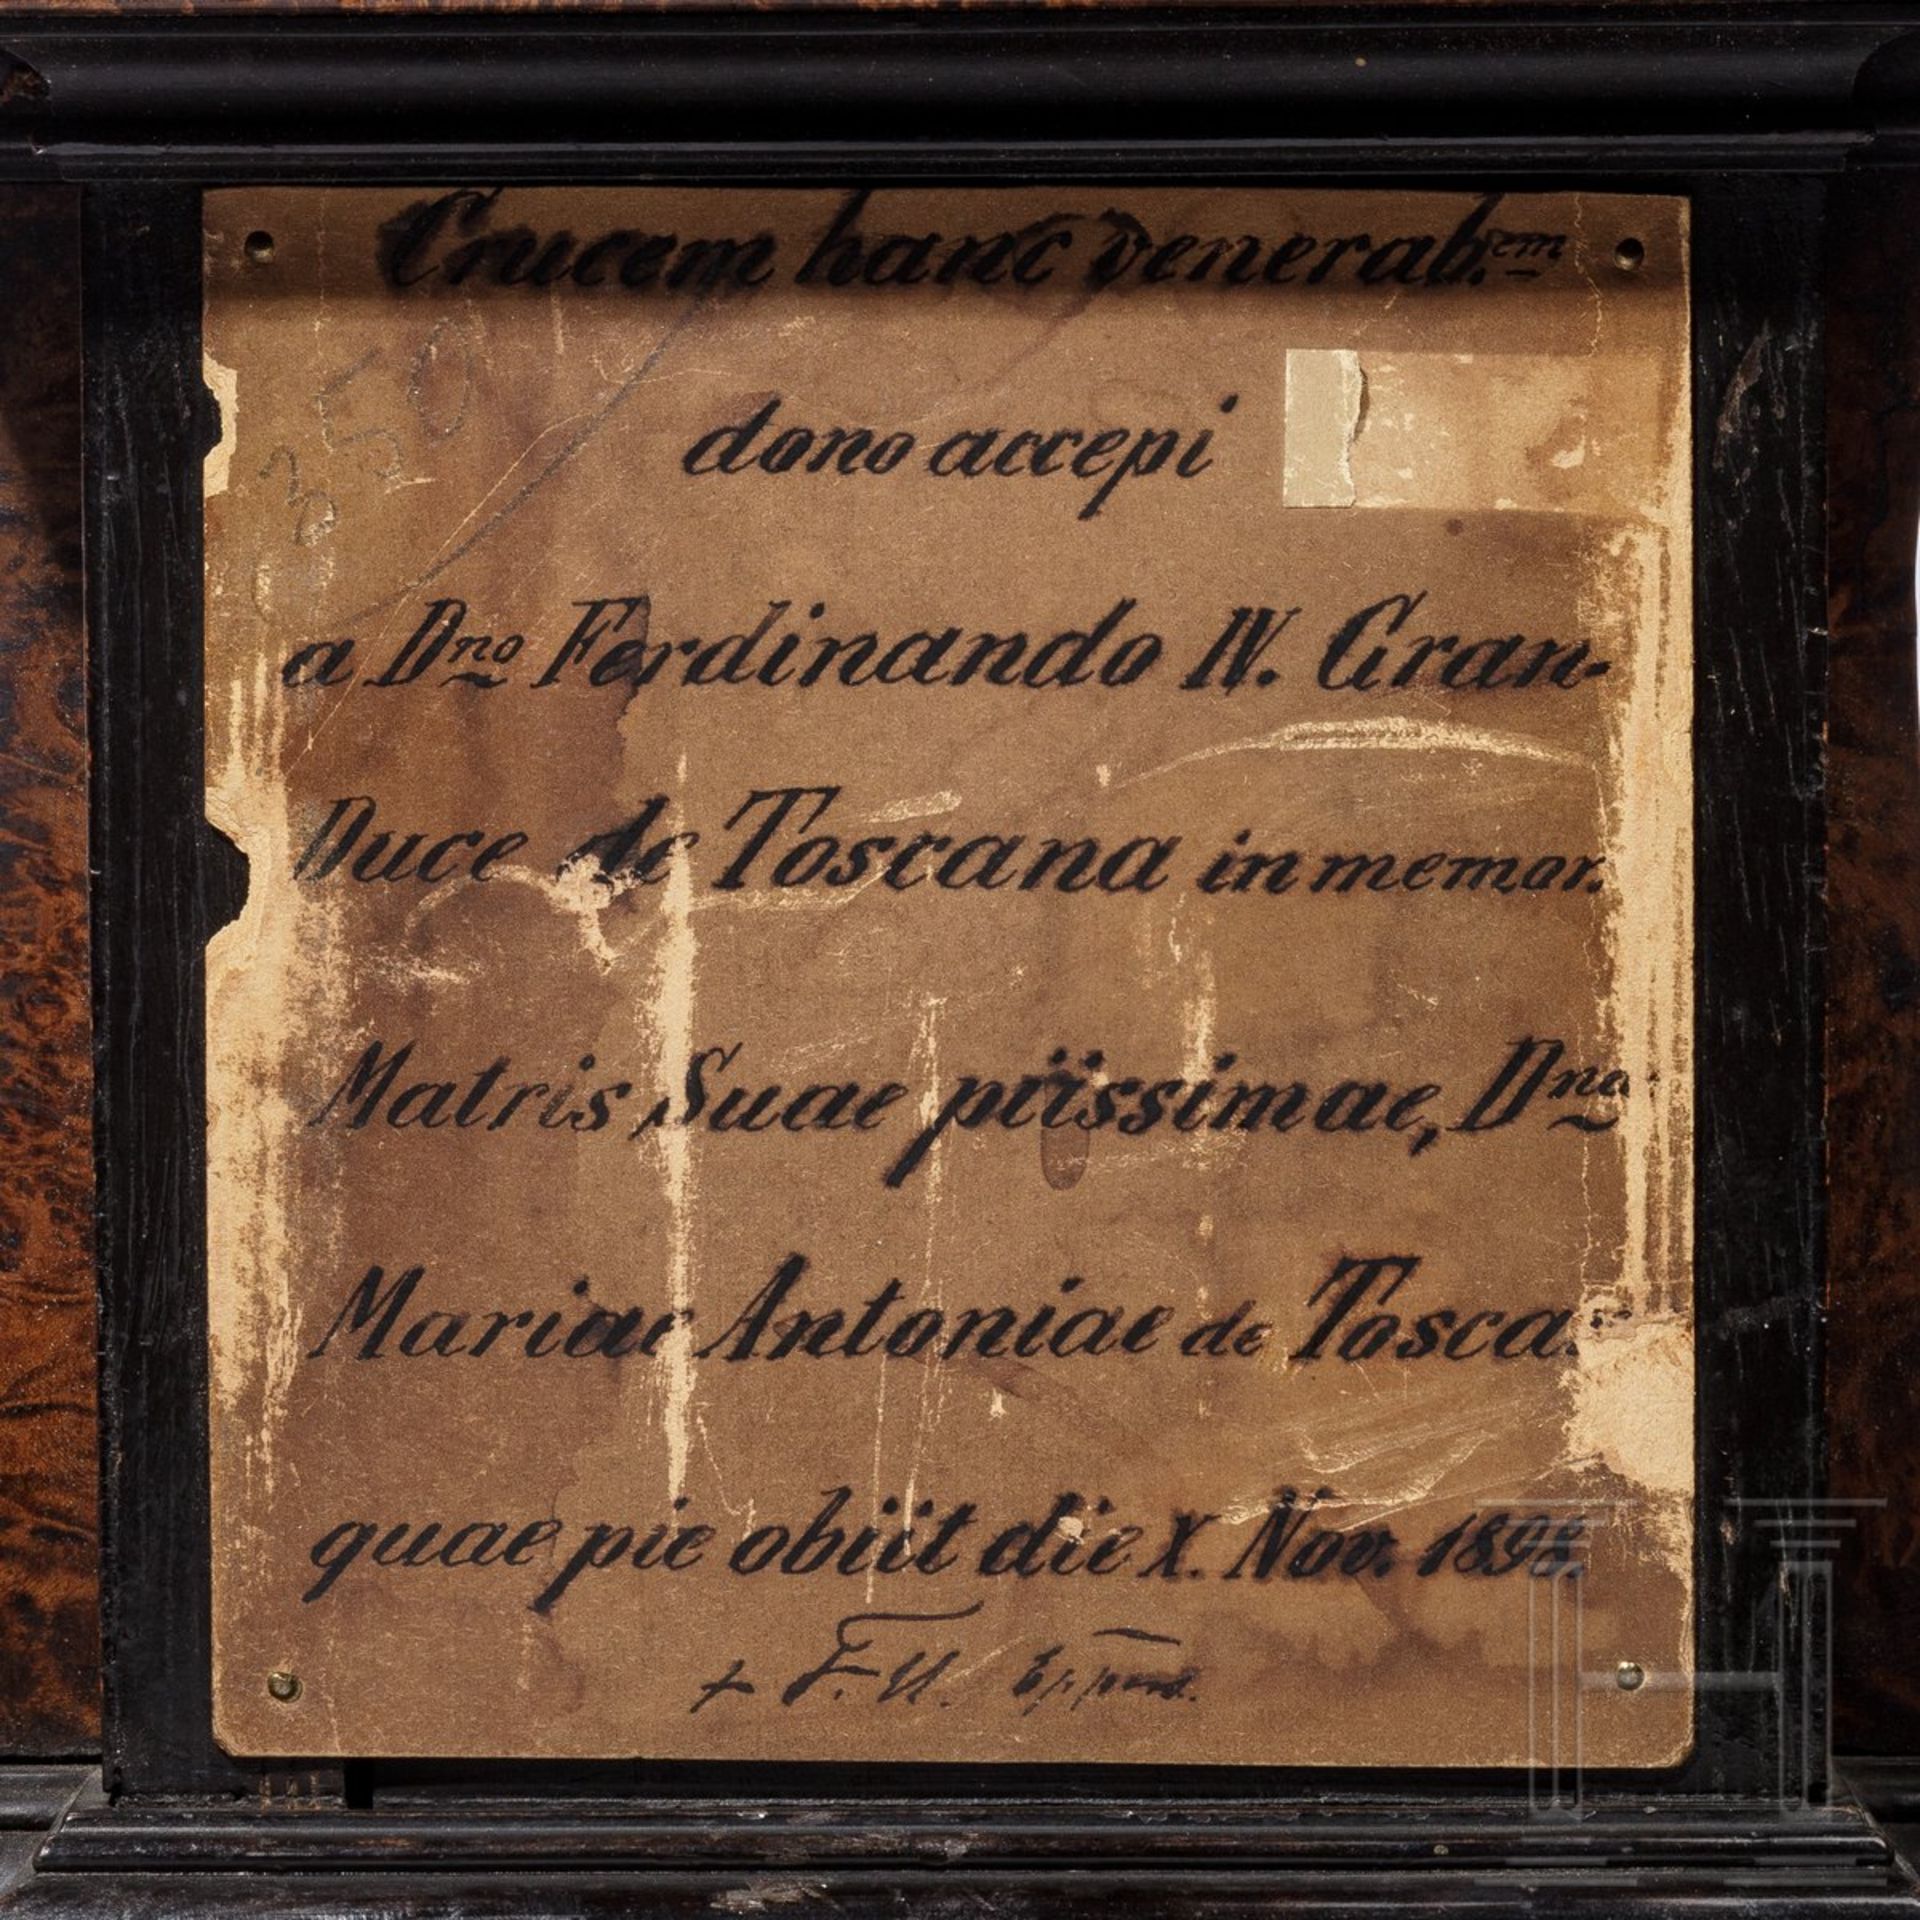 Crucem hanc venerab.em
350
dono accepi
a Dno Ferdinando IV. Gran-
Duce de Toscana in memor.
Matris Suae piissimae, Dna
Mariae Antoniae de Tosca
quae pie obiit die X. Nov. 1898.
+ F. U.